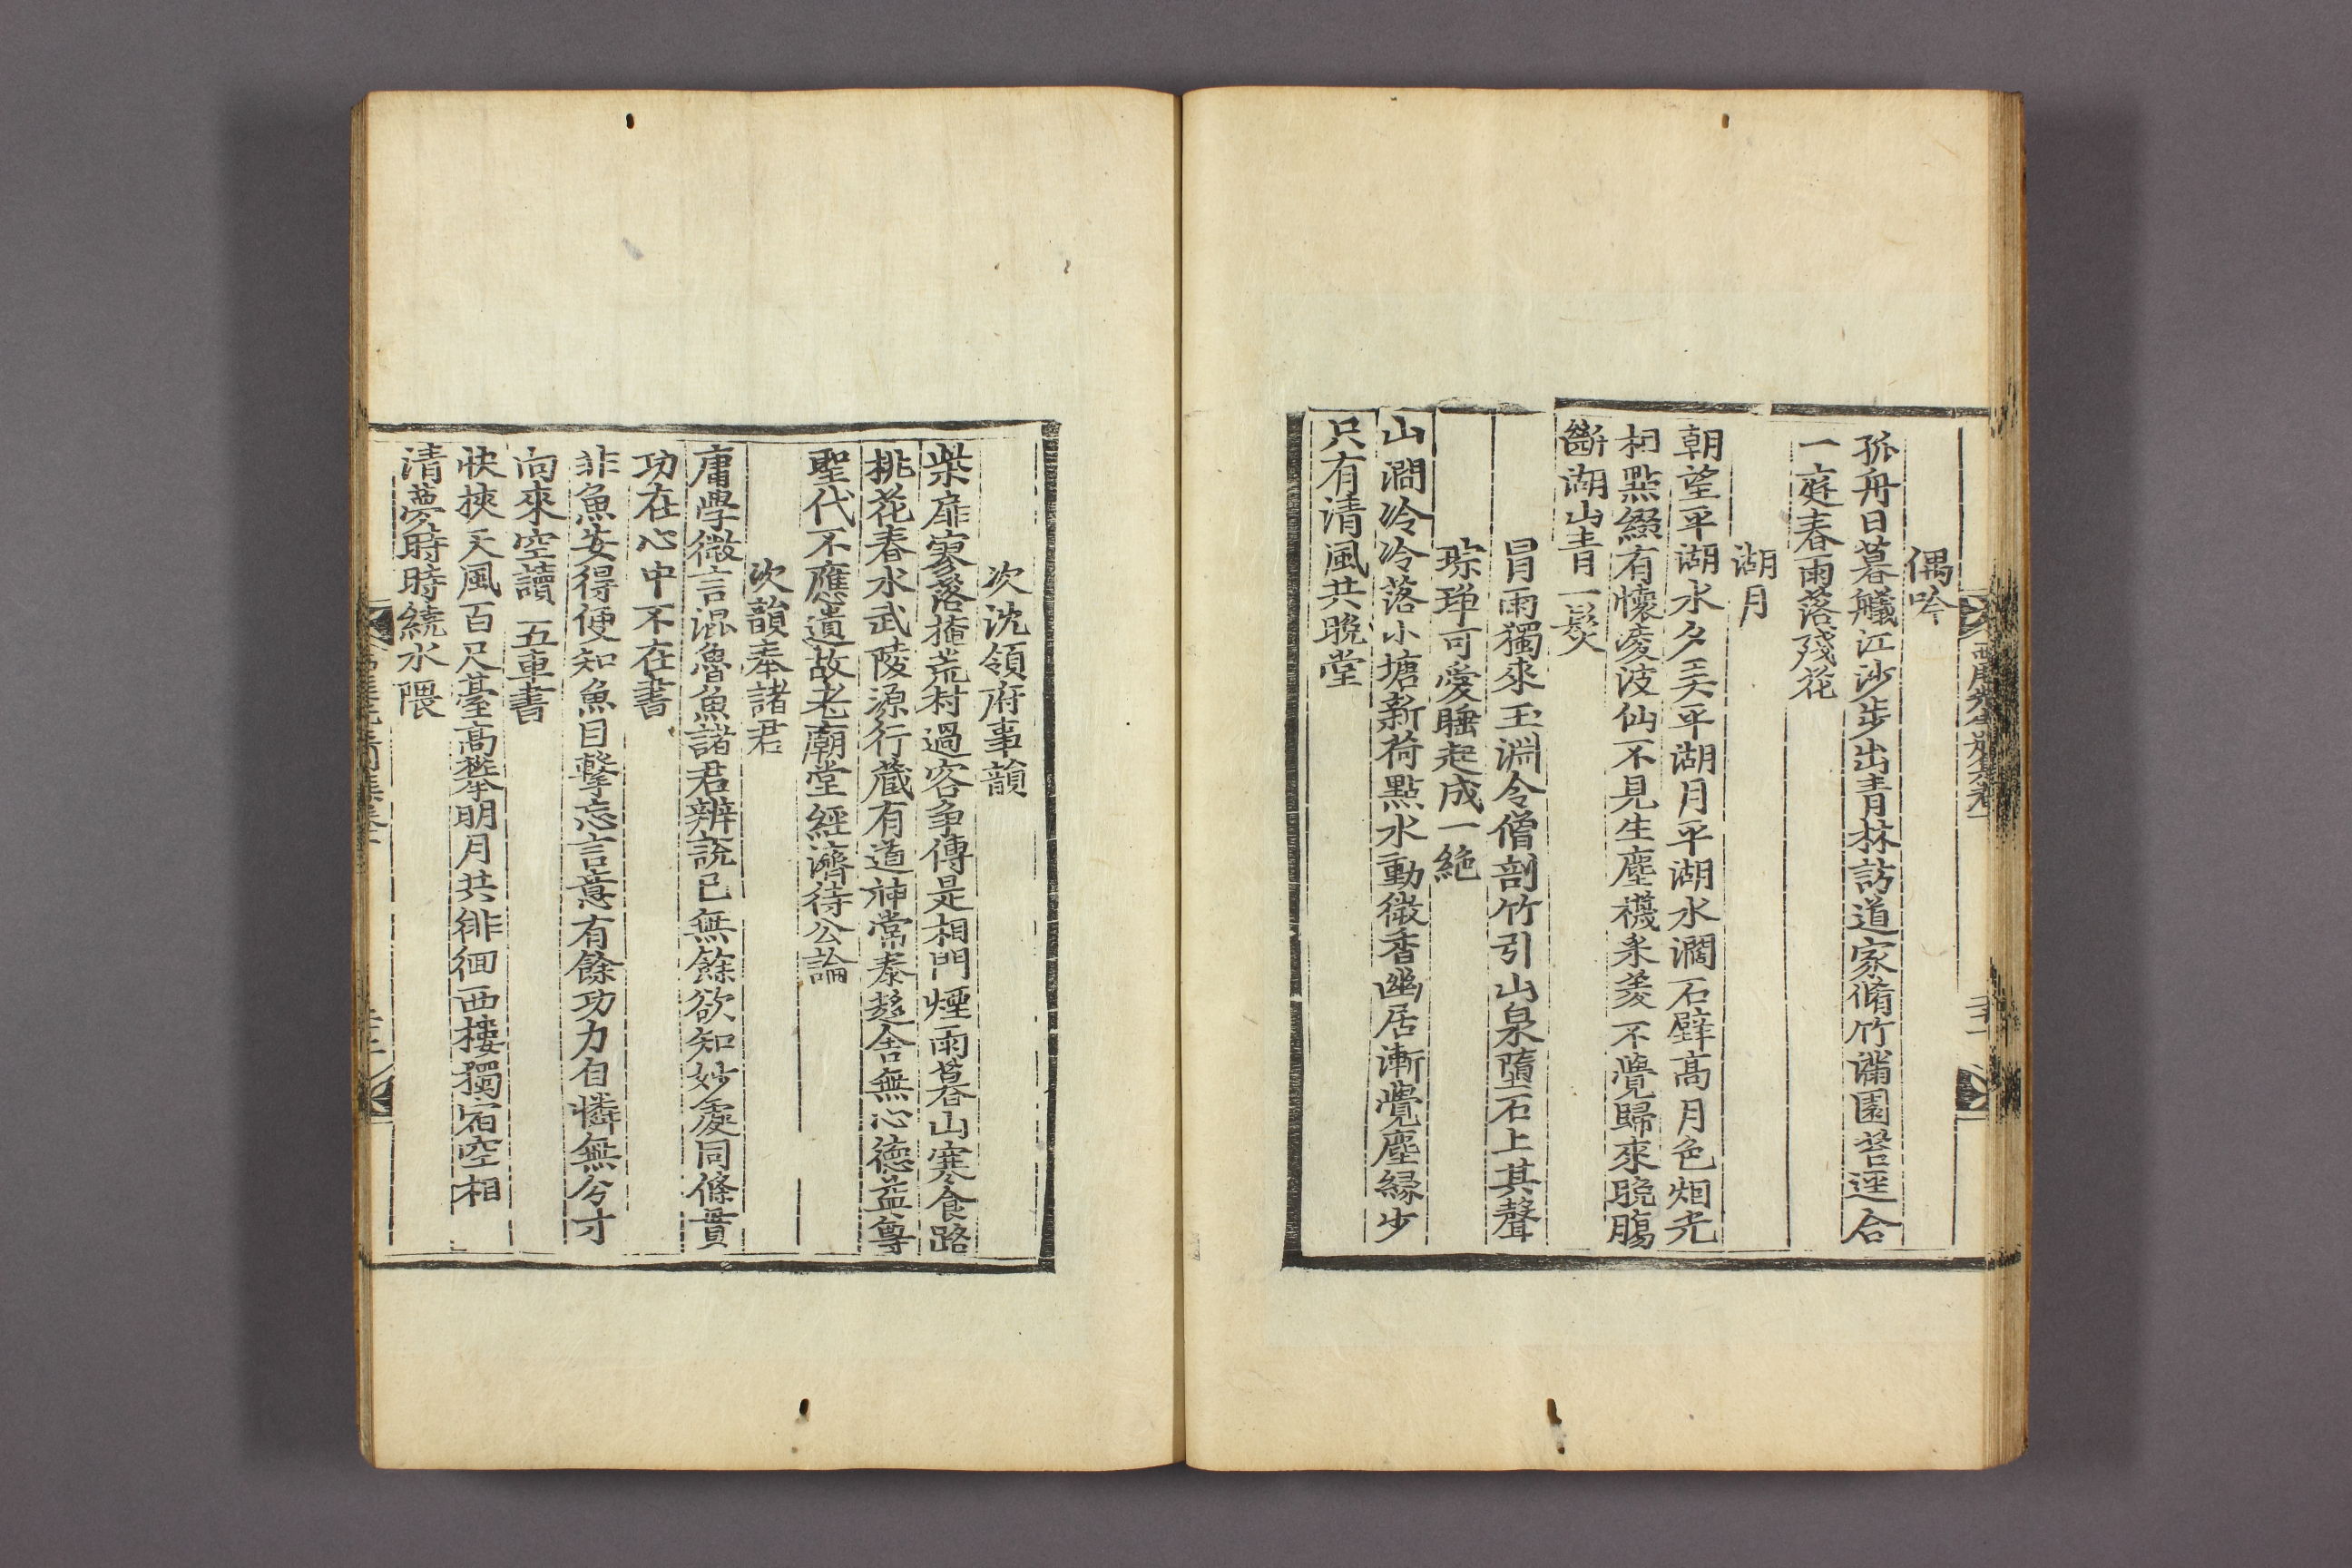 偶吟
孤舟日暮艤江沙步出青林訪道家脩竹滿園苔逕合
一庭春雨落殘花
湖月
朝望平湖水夕弄平湖月平湖水濶石壁高月色烟光
相點綴有懷凌波仙不見生塵襪采菱不覺歸來晩腸
斷湖山青一髮
冒雨獨來玉淵令僧剖竹引山泉墮石上其聲
琮琤可愛睡起成一絶
山澗冷冷落小塘新荷點水動微香幽居漸覺塵緣少
只有清風共晩堂
次沈領府事韻
柴扉寥落掩荒村過客爭傳是相門煙雨暮山寒食路
桃花春水武陵源行藏有道神常泰趍舍無心德益尊
聖代不應遺故老廟堂經濟待公論
次韻奉諸君
庸學微言混魯魚諸君辨說已無餘欲知妙處同條貫
功在心中不在書
非魚安得便知魚目擊忘言意有餘功力自憐無分寸
向來空讀五車書
快挾天風百尺臺高攀明月共徘徊西樓獨宿空相
清夢時時繞水隈